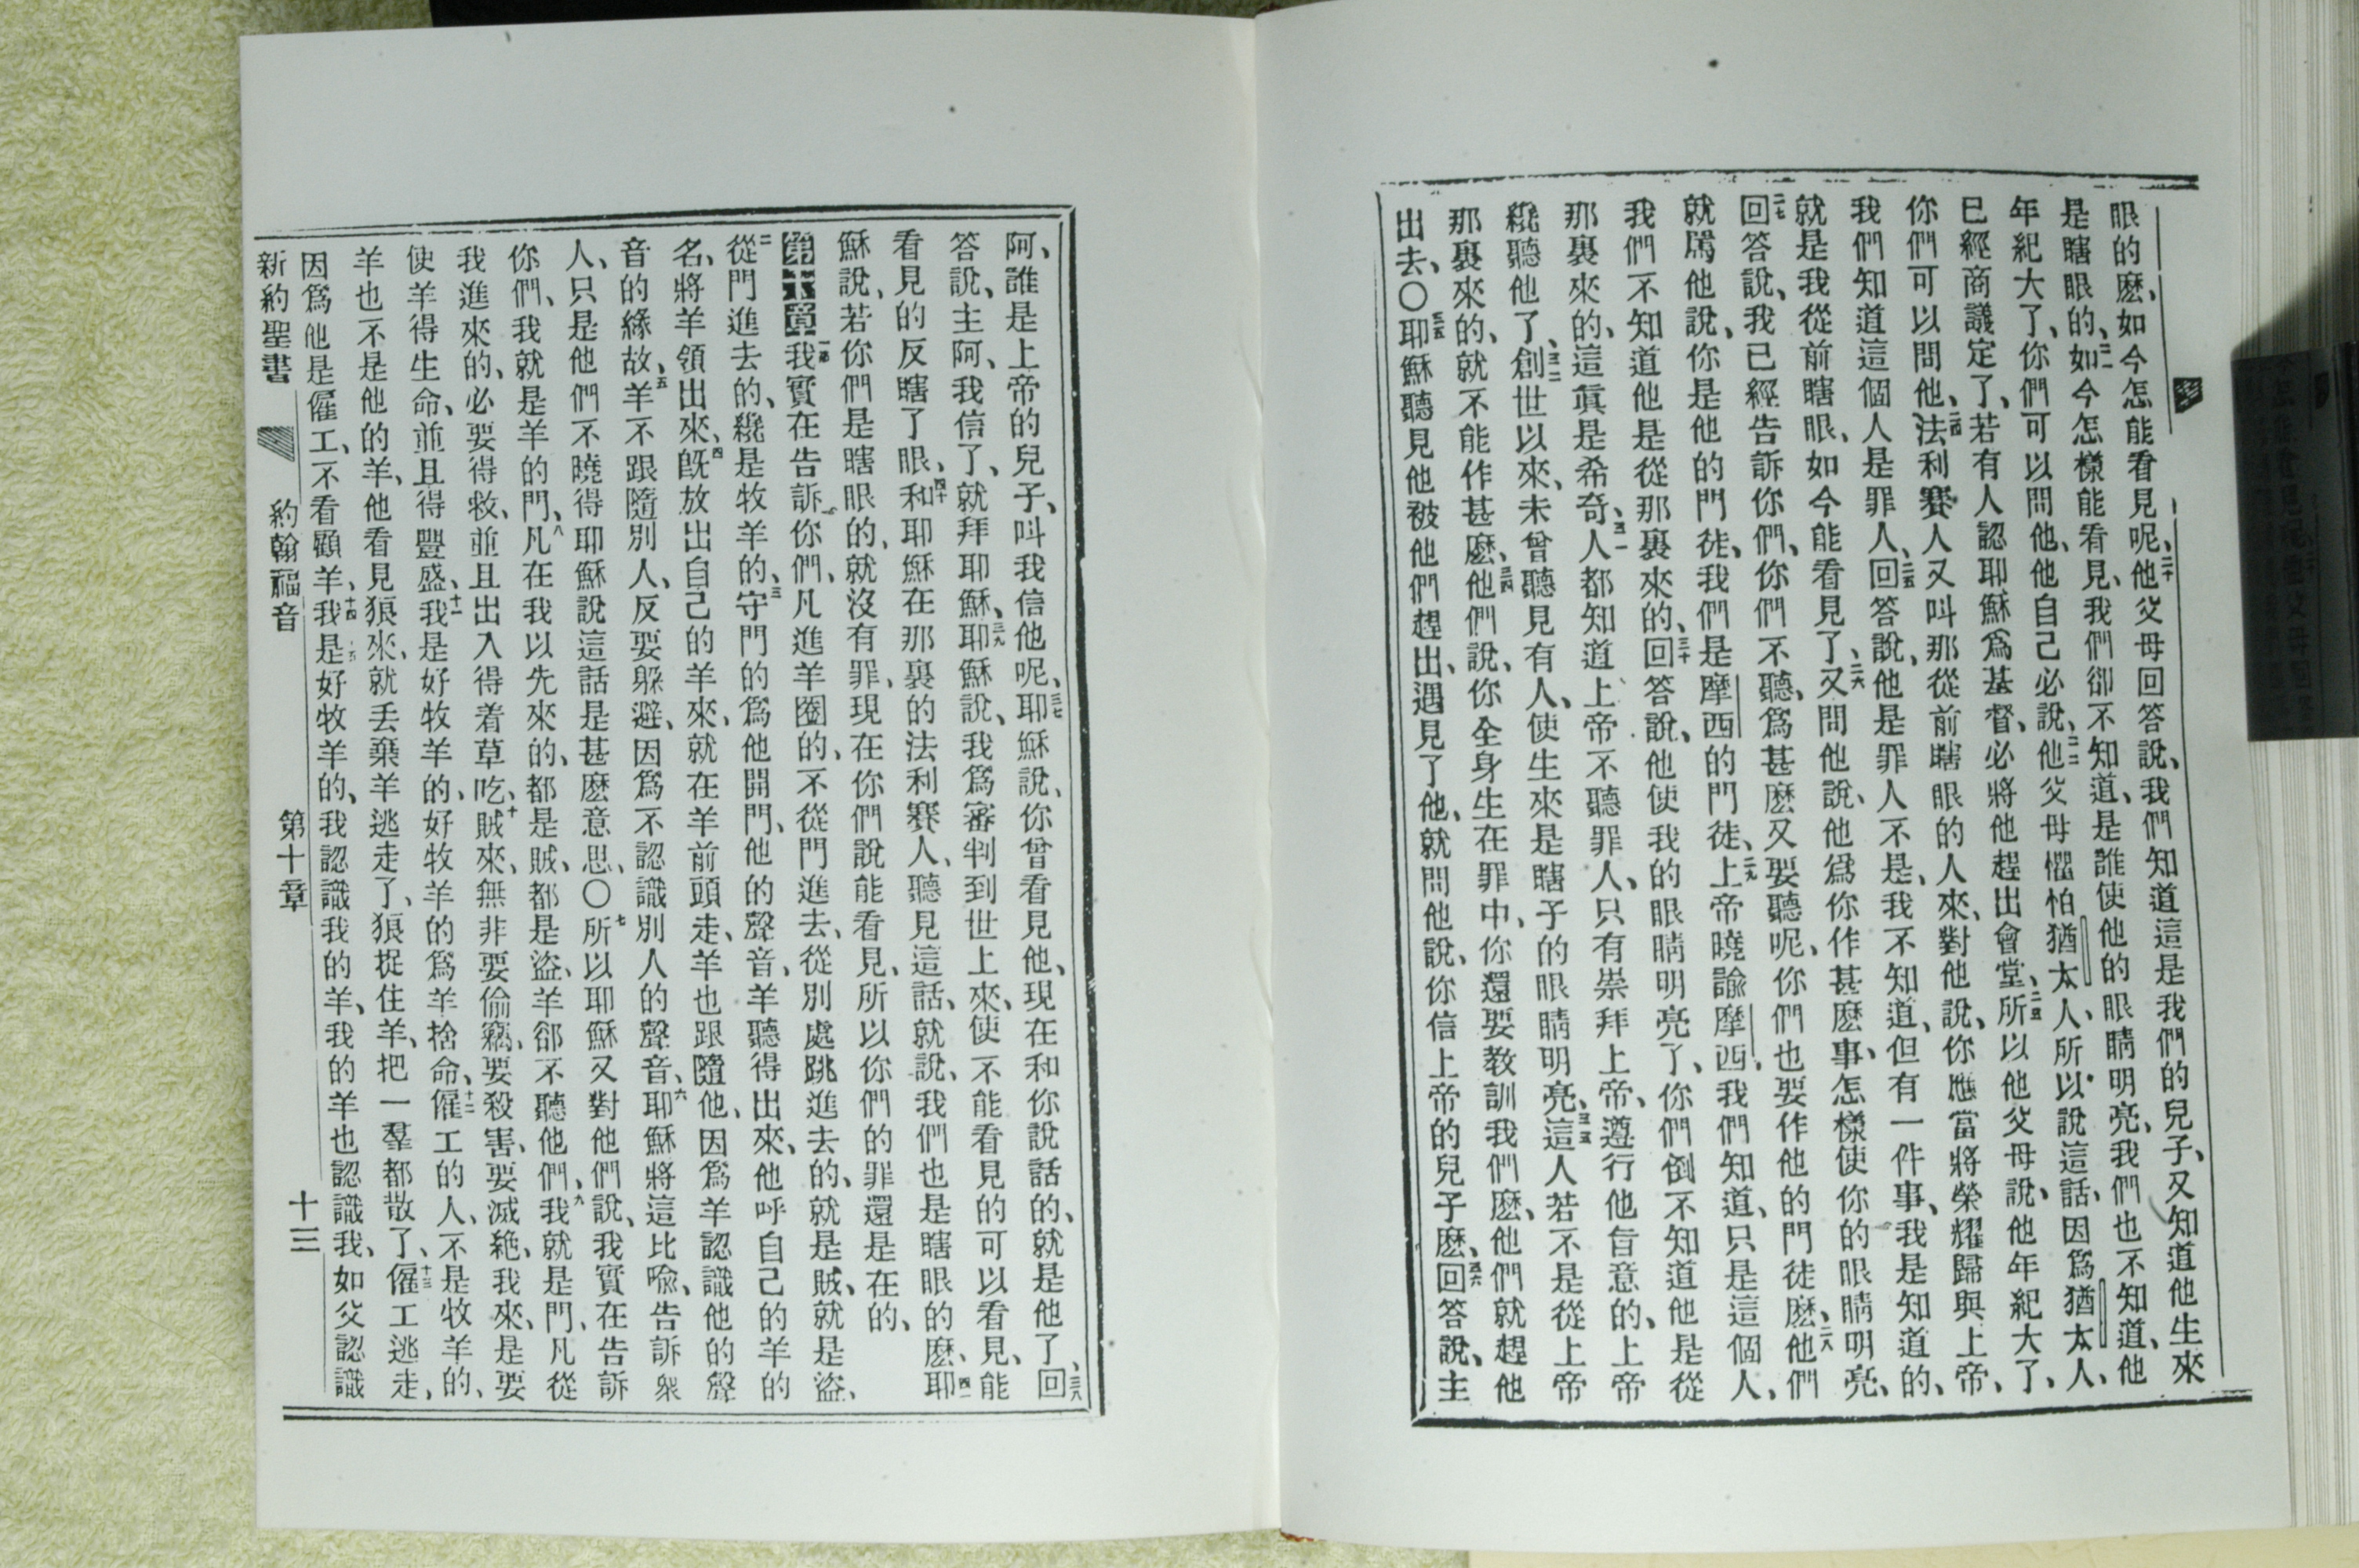 眼的麽、如今怎能看見呢、二十他父母回答說、我們知道這是我們的兒子、又知道他生來
是瞎眼的、二一如今怎樣能看見、我們卻不知道、是誰使他的眼睛明亮、我們也不知道、他
年紀大了、你們可以問他、他自己必說、二二他父母懼怕猶太人、所以說這話、因爲猶太人、
已經商議定了、若有人認耶穌爲基督、必將他趕出會堂、二三所以他父母說、他年紀大了、
你們可以問他、二四法利賽人又叫那從前瞎眼的人來、對他說、你應當將榮耀歸與上帝、
我們知道這個人是罪人、二五回答說、他是罪人不是、我不知道、但有一件事、我是知道的、
就是我從前瞎眼、如今能看見了、二六又問他說、他爲你作甚麽事、怎樣使你的眼睛明亮、
二七回答說、我已經告訴你們、你們不聽、爲甚麽又要聽呢、你們也要作他的門徒麽、二八他們
就罵他說、你是他的門徒、我們是摩西的門徒、二九上帝曉諭摩西、我們知道、只是這個人、
我們不知道他是從那裏來的、三十回答說、他使我的眼睛明亮了、你們倒不知道他是從
那裏來的、這眞是希奇、三一人都知道上帝不聽罪人、只有崇拜上帝、遵行他旨意的、上帝
纔聽他了、三二創世以來、未曾聽見有人、使生來是瞎子的眼睛明亮、三三這人若不是從上帝
那裏來的、就不能作甚麽、三四他們說、你全身生在罪中、你還要敎訓我們麽、他們就趕他
出去、〇三五耶穌聽見他被他們趕出、遇見了他、就問他說、你信上帝的兒子麽、三六回答說、主
阿、誰是上帝的兒子、叫我信他呢、三七耶穌說、你曾看見他、現在和你說話的、就是他了、三八回
答說、主阿、我信了、就拜耶穌、三九耶穌說、我爲審判到世上來、使不能看見的可以看見、能
看見的反瞎了眼、四十和耶穌在那裏的法利賽人、聽見這話、就說、我們也是瞎眼的麽、四一耶
穌說、若你們是瞎眼的、就沒有罪、現在你們說能看見、所以你們的罪還是在的、
第十章 一節我實在告訴你們、凡進羊圈的、不從門進去、從別處跳進去的、就是賊、就是盜、
二從門進去的、纔是牧羊的、三守門的爲他開門、他的聲音、羊聽得出來、他呼自己的羊的
名、將羊領出來、四旣放出自己的羊來、就在羊前頭走、羊也跟隨他、因爲羊認識他的聲
音的緣故、五羊不跟隨別人、反要躱避、因爲不認識別人的聲音、六耶穌將這比喩、告訴衆
人、只是他們不曉得耶穌說這話是甚麽意思、〇七所以耶穌又對他們說、我實在告訴
你們、我就是羊的門、八凡在我以先來的、都是賊、都是盜、羊卻不聽他們、九我就是門、凡從
我進來的、必要得救、並且出入得着草吃、十賊來、無非要偷竊、要殺害、要滅絶、我來、是要
使羊得生命、並且得豐盛、十一我是好牧羊的、好牧羊的爲羊捨命、十二僱工的人、不是牧羊的、
羊也不是他的羊、他看見狼來、就丢棄羊逃走了、狼捉住羊、把一羣都散了、十三僱工逃走、
因爲他是僱工、不看顧羊、十四我是好牧羊的、我認識我的羊、我的羊也認識我、十五如父認識
新約聖書 約翰福音 第十章 十三